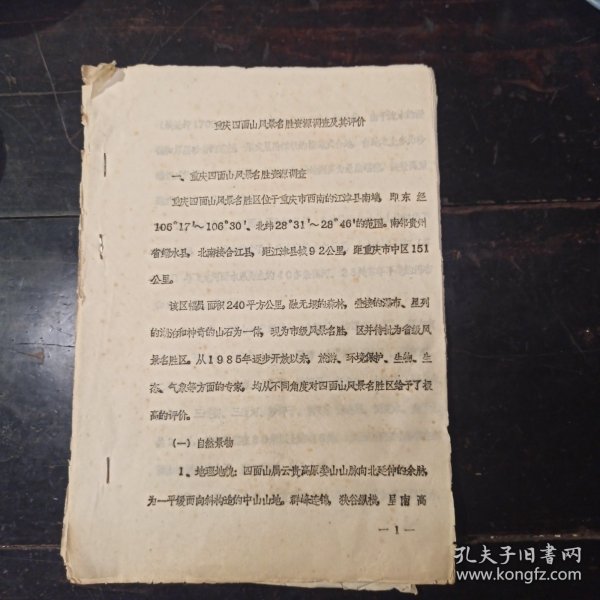 重庆四面山风景名胜资源调查及其评价
一、重庆四面山风景名胜资源调查
重庆四面山风景名胜区位于重庆市西南的江津县南端，即东经
106°17′～106°30′、北纬28°31′～28°46′的范围。南邻贵州
省习水县，北南接合江县，距江津县城92公里，距重庆市中区151
公里。
该区幅员面积240平方公里。融无垠的森林，叠接的瀑布、星列
的湖泊和神奇的山石为一体，现为市级风景名胜，区并待批为省级风
景名胜区。从1985年逐步开放以来，旅游、环境保护、生物、生
态、气象等方面的专家，均从不同角度对四面山风景名胜区给予了极
高的评价。
（一）自然景物
1、地理地貌：四面山属云贵高原娄山山脉向北延伸的余脉，
为一平缓而向斜构造的中山山地。群峰连绵，狭谷纵横，呈南高
—1—
孔夫子旧书网
www.kongfz.com